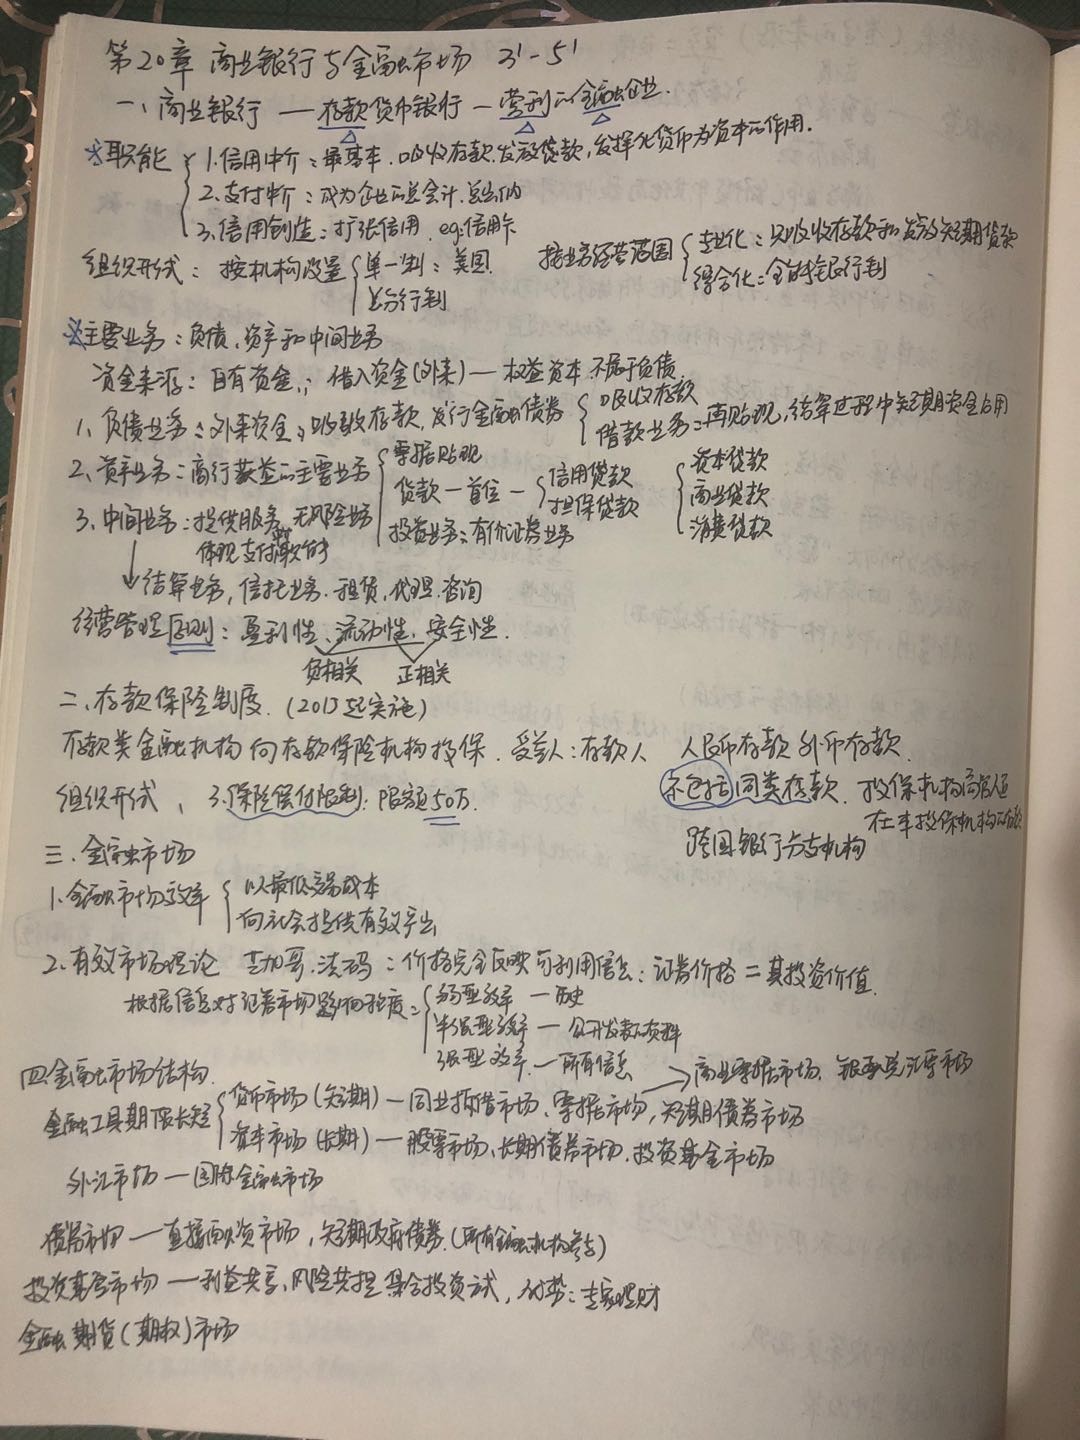 第20章 商业银行与金融市场 3'-5'
一、商业银行 — 存款货币银行 — 营利的金融企业.
※职能 1.信用中介：最基本.吸收存款.发放贷款,发挥化货币为资本的作用.
2.支付中介：成为企业的总会计.总出纳
3.信用创造：扩张信用. eg:信用卡
组织形式：按机构设置 单一制：美国. 按业务经营范围 专业化：只吸收存款和发放短期贷款
总分行制 综合化：全能银行制
※主要业务：负债,资产和中间业务
资金来源：自有资金,；借入资金(外来) — 权益资本 不属于负债.
1、负债业务：外来资金；吸收存款,发行金融债券 吸收存款
借款业务：再贴现,结算过程中短期资金占用
2、资产业务：商行获益的主要业务 票据贴现
贷款 — 首位 — 信用贷款 担保贷款 资本贷款 商业贷款 消费贷款
3、中间业务：提供服务 无风险业务 投资业务：有价证券业务
体现支付
↓结算业务,信托业务.租赁,代理.咨询
经营管理原则：盈利性、流动性、安全性.
负相关 正相关
二、存款保险制度.(2015起实施)
存款类金融机构向存款保险机构投保. 受益人：存款人 人民币存款 外币存款
组织形式、3.保险偿付限制：限额50万. 不包括同类存款. 投保机构高管人员
在本投保机构的存款
跨国银行分支机构
三.金融市场
1.金融市场效率 以最低交易成本
向社会提供有效产出
2.有效市场理论 芝加哥.法码：价格完全反映可利用信息：证券价格=其投资价值.
根据信息对证券市场影响程度= 弱型效率 — 历史
半强型效率 — 公开发表的资料
强型效率 — 所有信息
四.金融市场结构. →商业票据市场、银承兑汇票市场
金融工具期限长短 货币市场(短期) — 同业拆借市场、票据市场,短期债券市场
资本市场(长期) — 股票市场、长期债券市场.投资基金市场
外汇市场 — 国际金融市场
债券市场 — 直接融资市场,短期政府债券.(所有金融机构参与)
投资基金市场 — 利益共享,风险共担 集合投资方式,优势：专家理财
金融期货(期权)市场